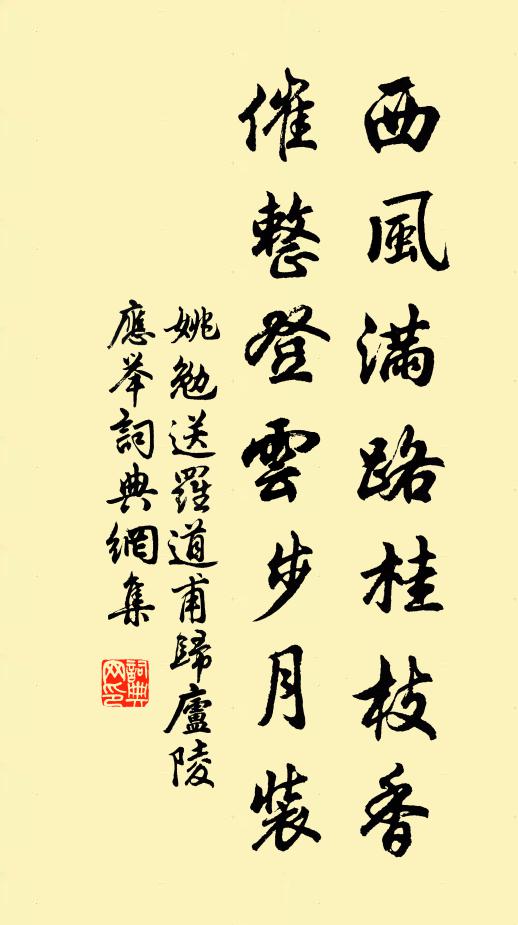 西風滿路桂枝香
催整登雲步月裝
姚勉送羅道甫歸廬陵
應举詞典網集
詞典网印